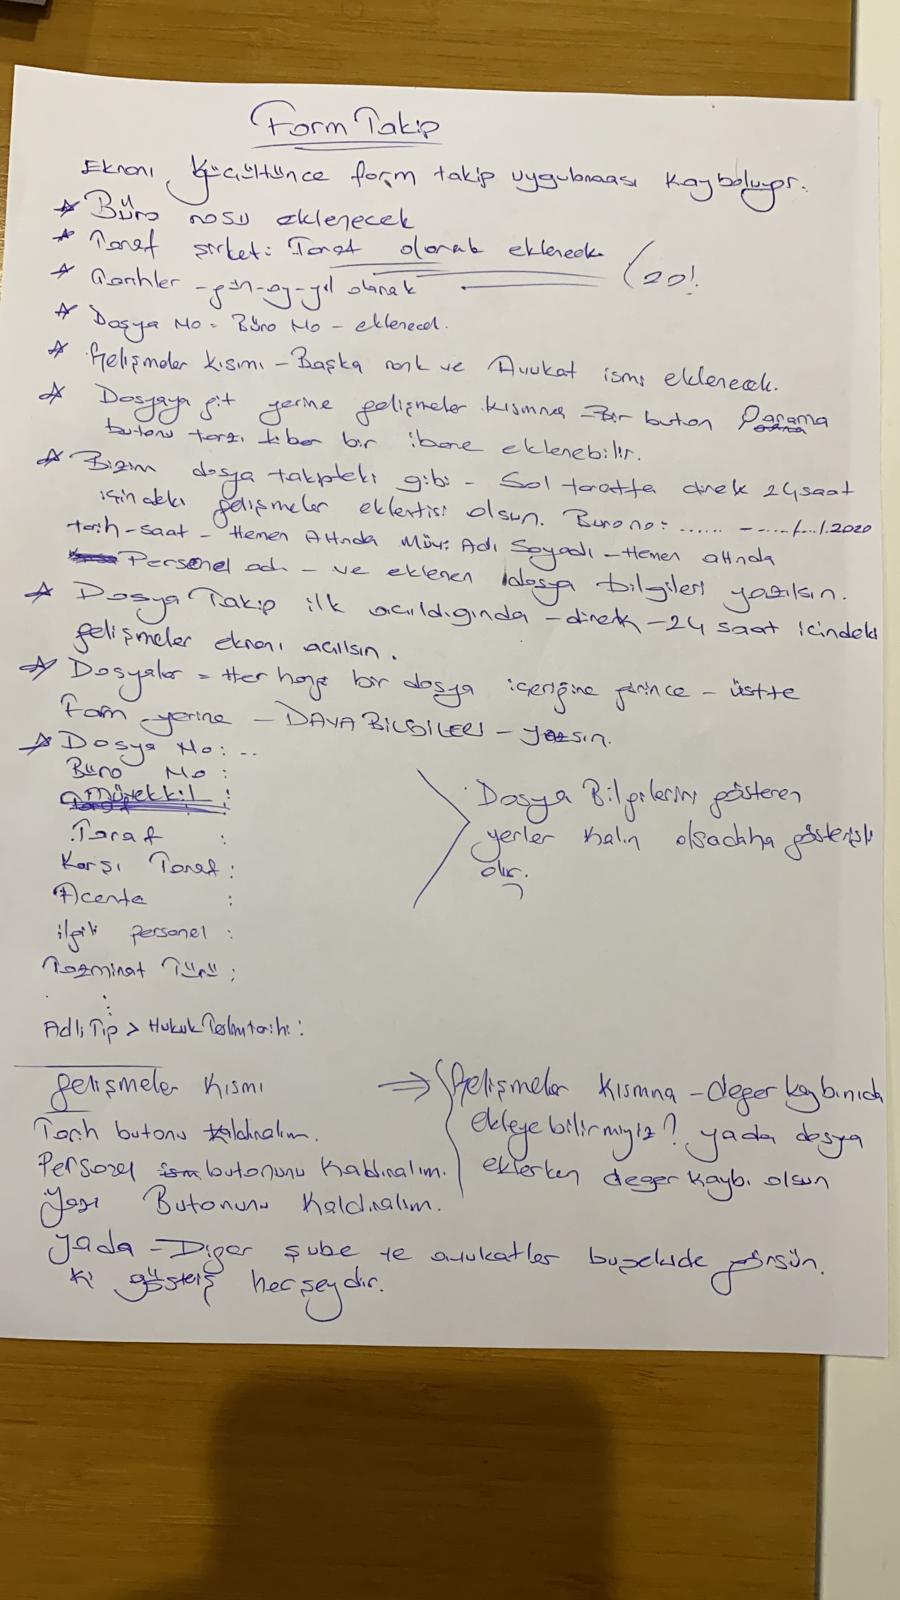 Form Takip
Ekranı Küçültünce form takip uygulaması kayboluyor.
* Büro nosu eklenecek
* Taraf şirket: Taraf olarak eklenecek (20!
* Tarihler - gün-ay-yıl olarak
* Dosya No = Büro No - eklenecek.
* Gelişmeler kısmı - Başka renk ve Avukat ismi eklenecek.
* Dosyaya git yerine gelişmeler kısmına - Bir buton
butonu tarzı bir ibare eklenebilir.
* Bizim dosya takipteki gibi - Sol tarafta direk 24 saat
içindeki gelişmeler eklentisi olsun. Buro no: ...... - ..../.../.2020
tarih-saat - Hemen Altında Müv: Adı Soyadı - Hemen altında
Personel adı - ve eklenen dosya bilgileri yazılsın.
* Dosya Takip ilk açıldığında - direk - 24 saat içindeki
gelişmeler ekranı açılsın.
* Dosyalar = Her hangi bir dosya içeriğine girince - üstte
Form yerine - DAVA BİLGİLERİ - yazsın.
* Dosya No: ..
Büro No :
Müvekkil :
Taraf :
Karşı Taraf :
Acenta :
ilgili personel :
Tazminat Türü :
:
Adli Tıp > Hukuk Teslim tarihi :
Dosya Bilgilerini gösteren
yerler kalın olsa daha gösterişli
olur.
Gelişmeler Kısmı
Tarih butonu kaldıralım.
Personel butonunu Kaldıralım.
Yazı Butonunu Kaldıralım.
⇒ Gelişmeler Kısmına - değer kaybınıda
ekleyebilirmiyiz? yada dosya
eklerken değer kaybı olsun
Yada - Diğer şube ve avukatlar bu şekilde görsün.
ki gösteriş herşeydir.